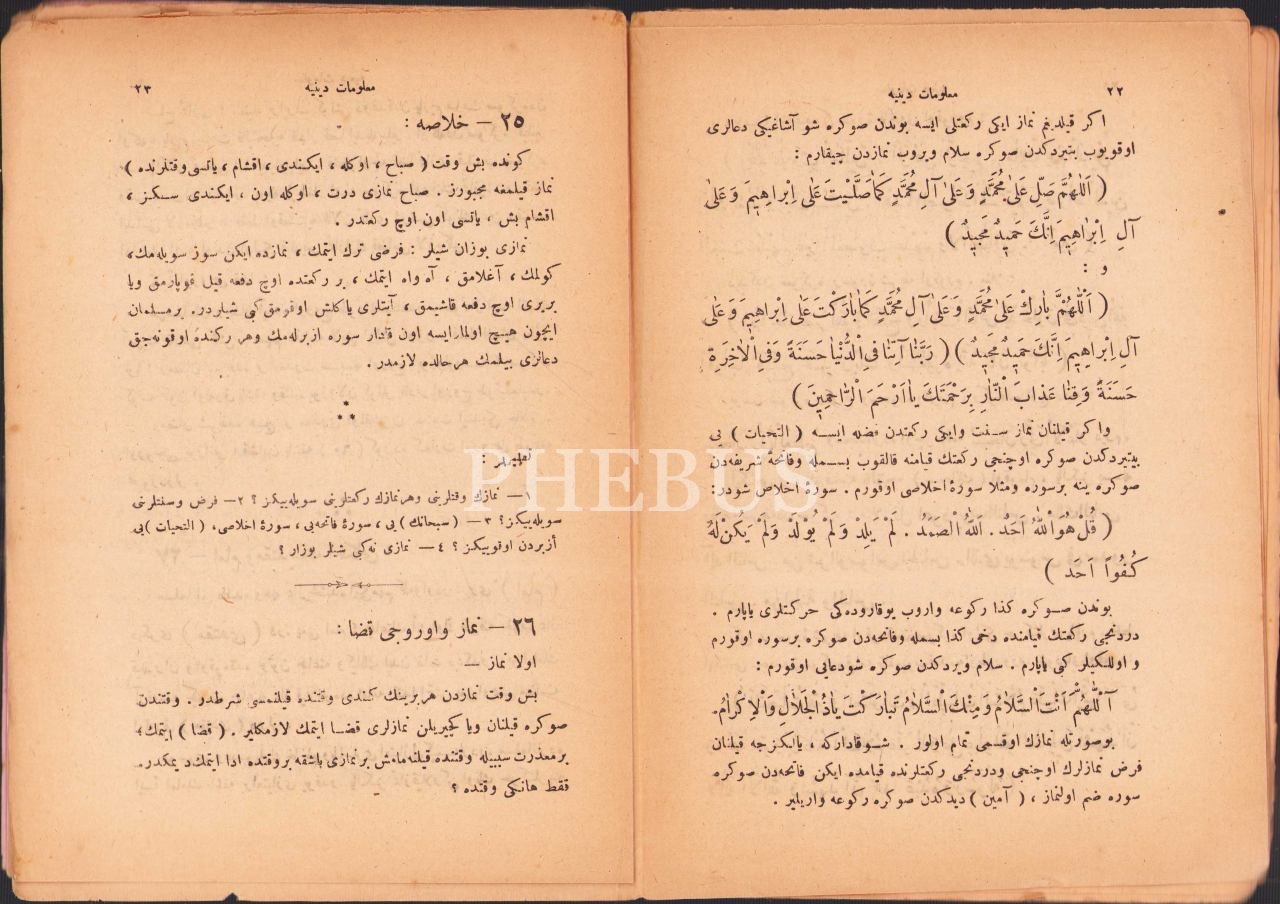 ٢٢
معلومات دينيه
اكر قيلديغم نماز ايكى ركعتلى ايسه بوندن صوكره شو آشاغيكى دعالرى
اوقويوب بتيردكدن صوكره سلام ويروب نمازدن چيقارم :
( اَللّٰهُمَّ صَلِّ عَلٰى مُحَمَّدٍ وَعَلٰى آلِ مُحَمَّدٍ كَمٰا صَلَّيْتَ عَلٰى اِبْرٰاهِيمَ وَعَلٰى
آلِ اِبْرٰاهِيمَ اِنَّكَ حَمِيدٌ مَجِيدٌ )
و :
( اَللّٰهُمَّ بٰارِكْ عَلٰى مُحَمَّدٍ وَعَلٰى آلِ مُحَمَّدٍ كَمٰا بٰارَكْتَ عَلٰى اِبْرٰاهِيمَ وَعَلٰى
آلِ اِبْرٰاهِيمَ اِنَّكَ حَمِيدٌ مَجِيدٌ ) ( رَبَّنٰا آتِنٰا فِى الْدُّنْيٰا حَسَنَةً وَفِى الْاٰخِرَةِ
حَسَنَةً وَقِنٰا عَذٰابَ الْنّٰارِ بِرَحْمَتِكَ يٰا اَرْحَمَ الْرّٰاحِمِينَ )
واكر قيلنان نماز سنت وايكى ركعتدن فضله ايسه ( التحيات ) يى
بيتيردكدن صوكره اوچنجى ركعتك قيامنه قالقوب بسمله وفاتحهٔ شريفه‌دن
صوكره ينه برسوره ومثلا سورهٔ اخلاصى اوقورم . سورهٔ اخلاص شودر:
( قُلْ هُوَ اللّٰهُ اَحَدٌ . اَللّٰهُ الْصَمَدُ . لَمْ يَلِدْ وَلَمْ يُولَدْ وَلَمْ يَكُنْ لَهُ
كُفُواً اَحَد )
بوندن صوكره كذا ركوعه واروب يوقاروده‌كى حركتلرى ياپارم .
دردنجى ركعتك قيامنده دخى كذا بسمله وفاتحه‌دن صوكره برسوره اوقورم
و اوللكيلر كبى ياپارم . سلام ويردكدن صوكره شودعايى اوقورم :
اَللّٰهُمَّ اَنْتَ الْسَّلٰامُ وَمِنْكَ الْسَّلٰامُ تَبٰارَكْتَ يٰاذَ الْجَلٰالِ وَالْاِكْرٰامُ.
بوصورتله نمازك اوقسمى تمام اولور . شوقاداركه ، يالكزجه قيلنان
فرض نمازلرك اوچنجى ودردنجى ركعتلرنده قيامده ايكن فاتحه‌دن صوكره
سوره ضم اولنماز ، ( آمين ) ديدكدن صوكره ركوعه واريلير .
معلومات دينيه
٢٣
٢٥ — خلاصه :
كونده بش وقت ( صباح ، اوكله ، ايكندى ، اقشام ، ياتسى وقتلرنده )
نماز قيلمغه مجبورز . صباح نمازى درت ، اوكله اون ، ايكندى سكز ،
اقشام بش ، ياتسى اون اوچ ركعتدر .
نمازى بوزان شيلر : فرضى ترك ايتمك ، نمازده ايكن سوز سويله‌مك ،
كولمك ، آغلامق ، آه واه ايتمك ، بر ركعتده اوچ دفعه قيل قوپارمق ويا
بريرى اوچ دفعه قاشيمق ، آيتلرى ياكلش اوقومق كبى شيلردر. برمسلمان
ايچون هيچ اولمازايسه اون قادار سوره ازبرله‌مك وهر ركنده اوقونه‌جق
دعالرى بيلمك هرحالده لازمدر .
*
* *
١— نمازك وقتلرينى وهرنمازك ركعتلرينى سويله‌ييكز ؟ ٢— فرض وسنتلرينى
سويله‌ييكز؟ ٣ — ( سبحانك ) يى ، سورهٔ فاتحه‌يى ، سورهٔ اخلاصى، ( التحيات )يى
ازبردن اوقوييكز ؟ ٤ — نمازى نه‌كبى شيلر بوزار ؟
٢٦ — نماز واوروجى قضا :
اولا نماز —
بش وقت نمازدن هربرينك كندى وقتنده قيلنمسى شرطدر . وقتندن
صوكره قيلنان ويا كچيريلن نمازلرى قضا ايتمك لازمكلير . ( قضا ) ايتمك ،
برمعذرت سببيله وقتنده قيلنه‌مامش برنمازى باشقه بروقتده ادا ايتمك ديمكدر.
فقط هانكى وقتده ؟
PHEBUS